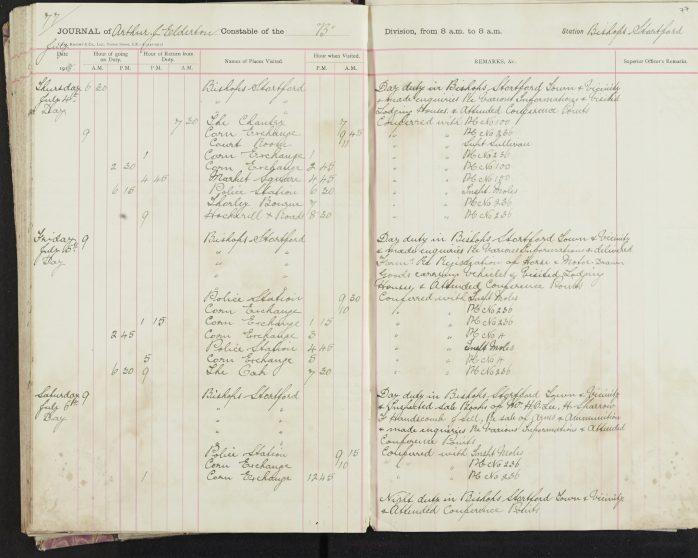 77
77
JOURNAL of Arthur J. Elderton Constable of the "B" Division, from 8 a.m. to 8 a.m. Station Bishops Stortford
Date Hour of going on Duty. Hour of Return from Duty. Names of Places Visited. Hour when Visited. REMARKS, &c. Superior Officer's Remarks.
A.M. P.M. A.M. P.M. P.M. A.M.
Thursday 6 30 Bishops Stortford Day duty in Bishops Stortford Town & Vicinity
July 4th " " & made enquiries Re Various Informations & Visited
Day " " Lodging Houses & Attended Conference Points
7 30 The Chantry 7 Conferred with PC No 100
9 Corn Exchange 9 45 " " PC No 236
Court Room 11 " " Supt Sullivan
1 Corn Exchange 1 " " PC No 236
2 30 Corn Exchange 2 45 " " PC No 100
4 45 Market Square 4 45 " " PC No 100
6 15 Police Station 6 20 " " Inspt Moles
Thorley 7 " " PC No 236
9 Hockerill 8 30 " " PC No 236
Friday 9 Bishops Stortford Day duty in Bishops Stortford Town & Vicinity
July 5th " " & made enquiries Re Various Informations & delivered
Day " " Forms Re Registration of Horse & Motor Drawn
" " Goods carrying Vehicles & Visited Lodging
Houses, & Attended Conference Points
Police Station 9 30 Conferred with Inspt Moles
Corn Exchange 10 " " PC No 236
1 15 Corn Exchange 1 15 " " PC No 236
2 45 Corn Exchange 3 " " PC No
Police Station 4 45 " " Inspt Moles
5 Corn Exchange 5 " " PC No
6 30 9 The Oak 7 30 " " PC No 236
Saturday 9 Bishops Stortford Day duty in Bishops Stortford Town & Vicinity
July 6th " " & Inspected Sale Books of Mr H. Sharrow
Day " " Handscomb Re sale of Arms & Ammunition
" " & made enquiries Re Various Informations & Attended
Conference Points
Police Station 9 15 Conferred with Inspt Moles
Corn Exchange 10 " " PC No 236
1 Corn Exchange 12 45 " " PC No 236
Night duty in Bishops Stortford Town & Vicinity
& Attended Conference Points